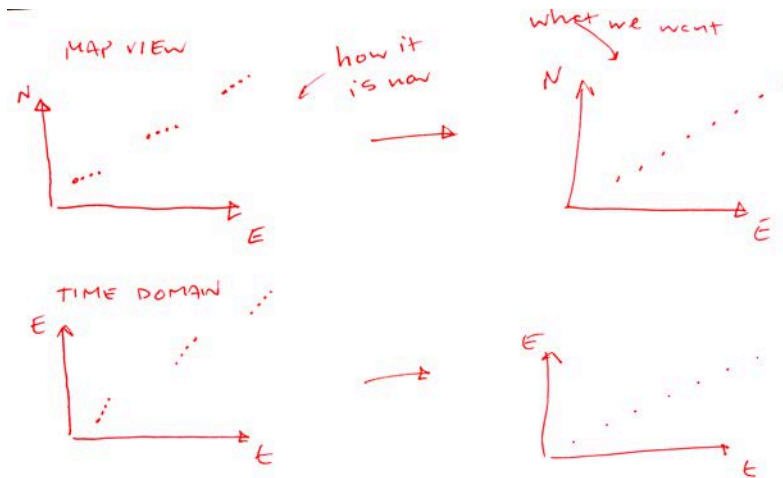 MAP VIEW
how it
is now
what we want
N
E
N
E
TIME DOMAIN
E
t
E
t